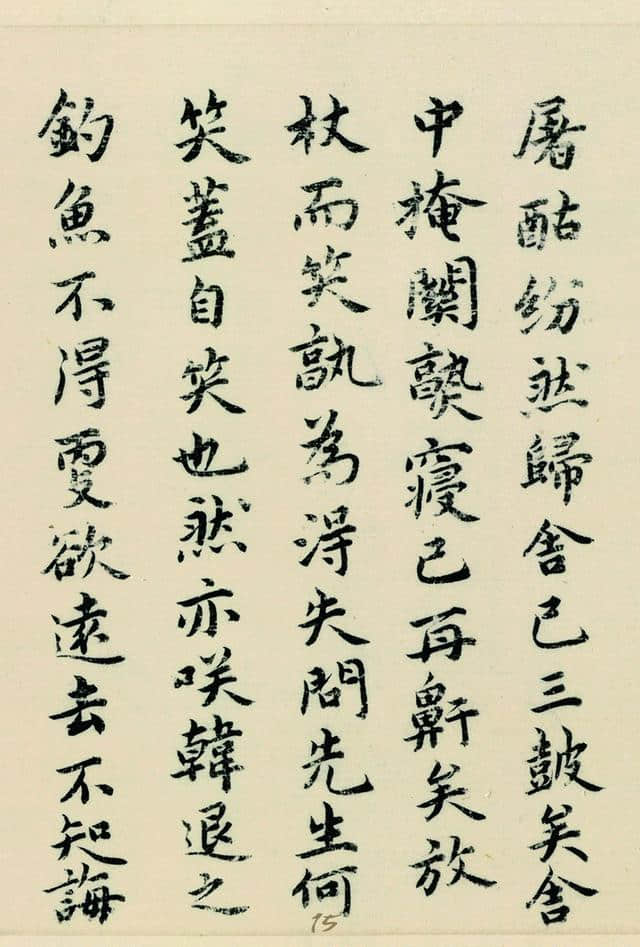 屠酤紛然歸舍已三鼓矣舍
中掩關熟寢已再鼾矣放
杖而笑孰為得失問先生何
笑蓋自笑也然亦咲韓退之
釣魚不得更欲遠去不知誨
15